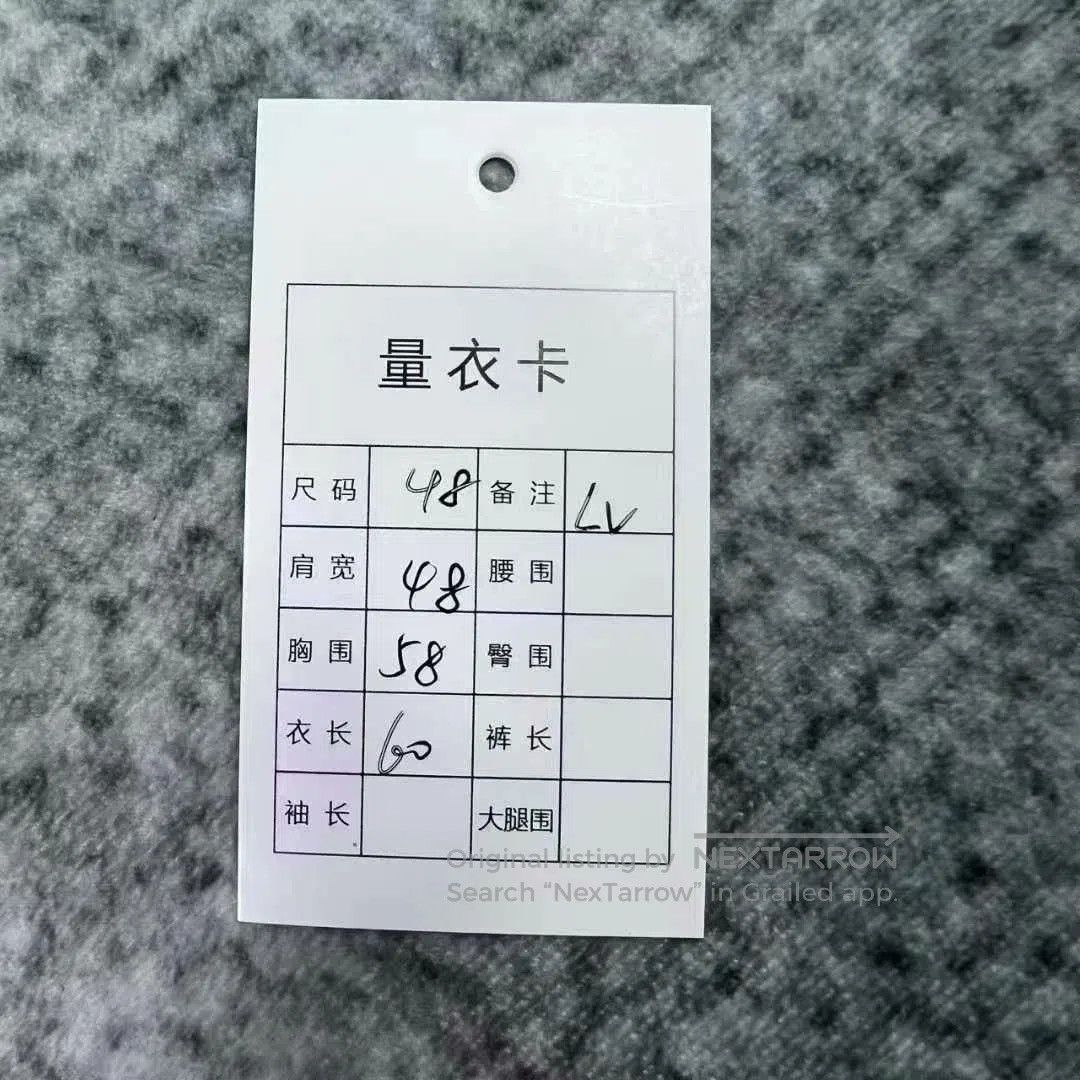 量衣卡
尺码 48 备注 LV
肩宽 48 腰围
胸围 58 臀围
衣长 60 裤长
袖长 大腿围
Original listing by NEXTARROW
Search “NexTarrow” in Grailed app.